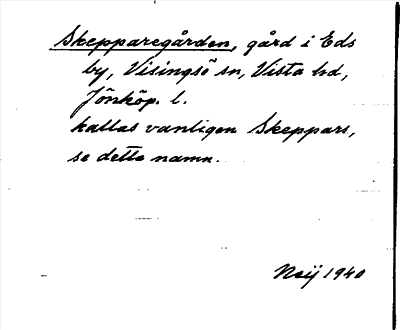 Skepparegården, gård i Eds
by, Visingsö sn, Vista hd,
Jönköp. l.
kallas vanligen Skeppars,
se detta namn.
1940